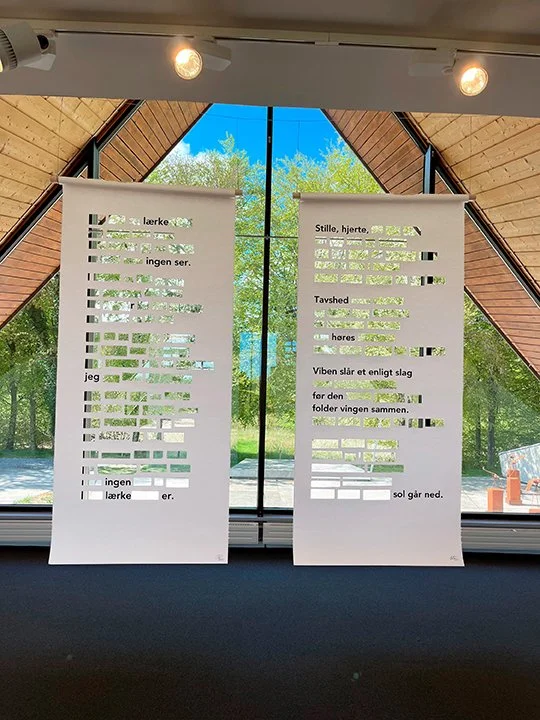 lærke
ingen ser.
jeg
ingen
lærke er.
Stille, hjerte,
Tavshed
høres
Viben slår et enligt slag
før den
folder vingen sammen.
sol går ned.